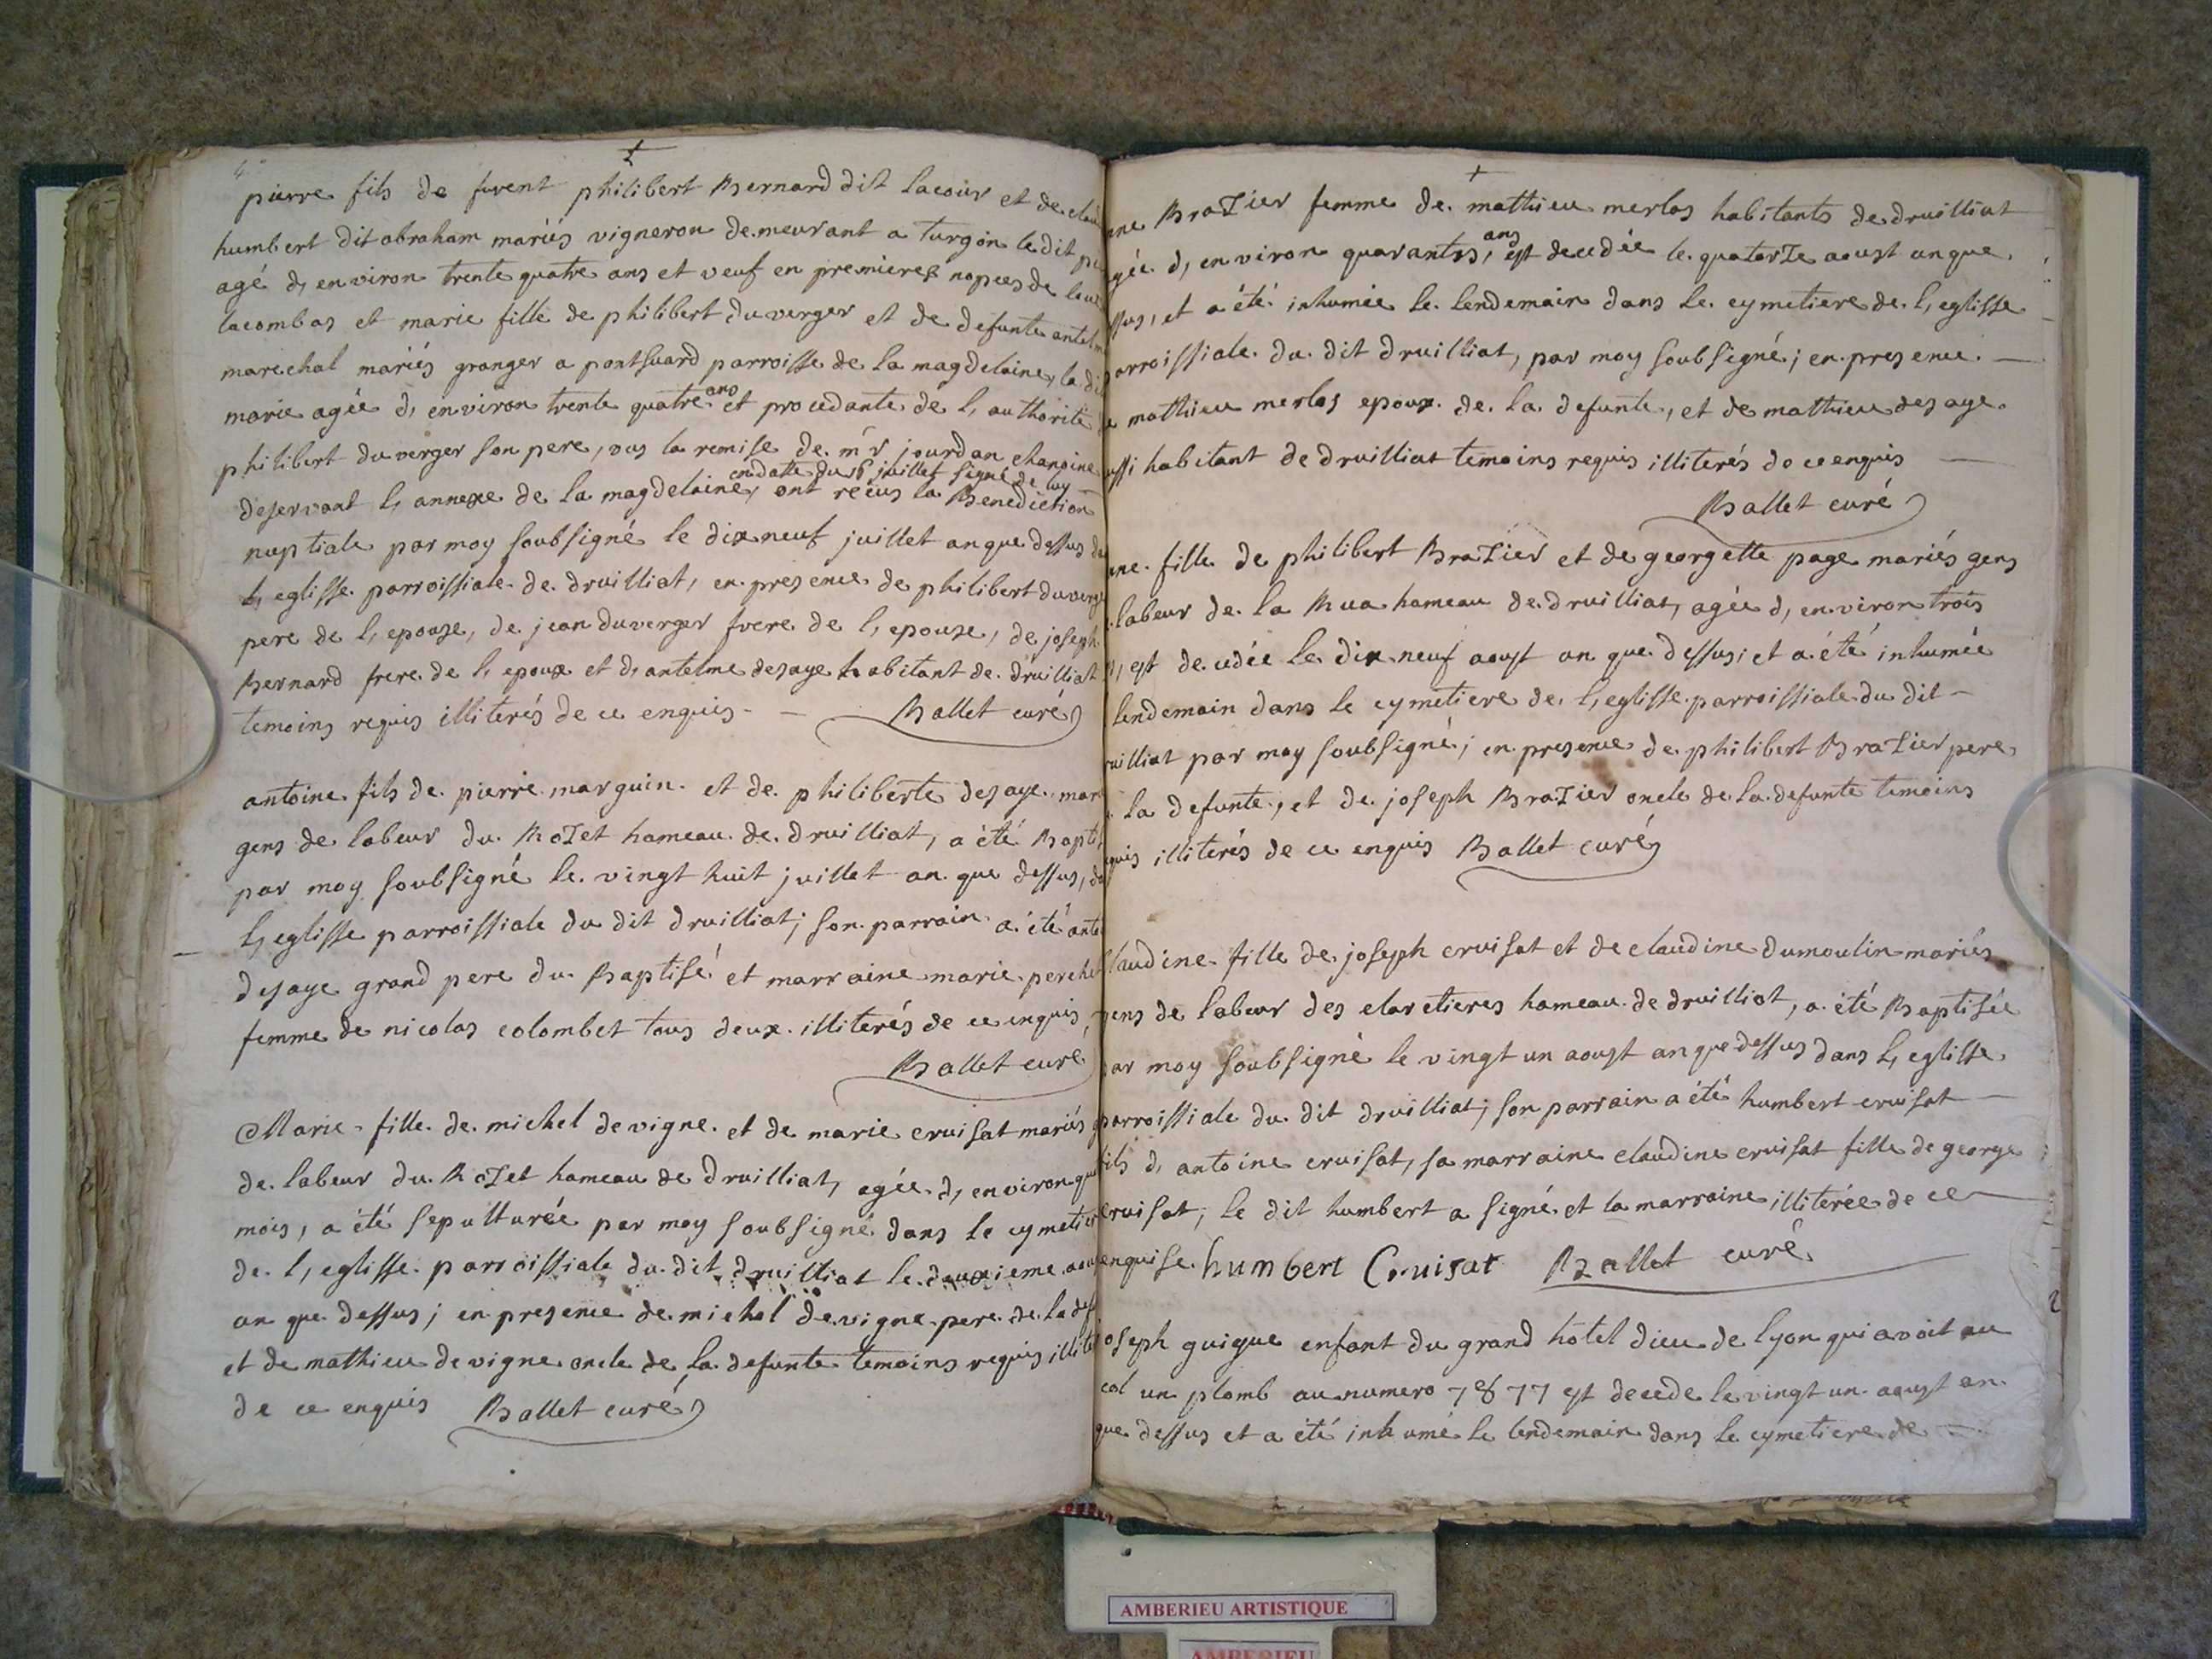 pierre fils de furent philibert Bernard dit lacour et de
humbert dit abraham mariés vigneron demeurant a turgon le dit
agé d, environ trente quatre ans et veuf en premieres nopces de
lacombas et marie fille de philibert duverger et de defunte
marechal mariés granger a pontsuard parroisse de la magdelaine, la
marie agée d, environ trente quatre ans et procedante de l, authorité
philibert duverger son pere, vus la remise de mr jourdan chanoine
en datte du 16 juillet signé de luy
deservant l, annexe de la magdelaine, ont recus la Benediction
nuptiale par moy soubsigné le dix neuf juillet an que dessus
l, eglisse parroissiale de druilliat, en presence de philibert
pere de l, epouse, de jean duverger frere de l, epouse, de joseph
Bernard frere de l, epoux et d, antelme desaye habitant de druilliat
temoins requis illiterés de ce enquis - Ballet curé
antoine fils de pierre marguin et de philiberte desaye
gens de labeur du RoZet hameau de druilliat, a été
par moy soubsigné le vingt huit juillet an que dessus,
l, eglisse parroissiale du dit druilliat; son parrain a été
desaye grand pere du Baptisé et marraine marie
femme de nicolas colombet tous deux illiterés de ce enquis
Ballet curé
Marie fille de michel devigne et de marie cruisat mariés
de labeur du RoZet hameau de druilliat, agée d, environ
mois, a été sepulturée par moy soubsigné dans le
de l, eglisse parroissiale du dit druilliat le deuxieme
an que dessus; en presence de michel devigne pere de la
et de mathieu devigne oncle de la defunte temoins requis
de ce enquis Ballet curé
BraZier femme de mathieu merlas habitants de druilliat
d, environ quarantes, ans est decedée le quatorZe aoust an que
et a été inhumée le lendemain dans le cymetiere de l, eglisse
du dit druilliat, par moy soubsigné; en presence
mathieu merlas epoux de la defunte, et de mathieu desaye
habitant de druilliat temoins requis illiterés de ce enquis
Ballet curé
fille de philibert BraZier et de georgette page mariés gens
labeur de la Rua hameau de druilliat, agée d, environ trois
est decedée le dix neuf aoust an que dessus; et a été inhumée
lendemain dans le cymetiere de l, eglisse parroissiale du dit
par moy soubsigné; en presence de philibert BraZier pere
la defunte, et de joseph BraZier oncle de la defunte temoins
illiterés de ce enquis Ballet curé
claudine fille de joseph cruisat et de claudine dumoulin mariés
gens de labeur des claretieres hameau de druilliat, a été Baptisée
par moy soubsigné le vingt un aoust an que dessus dans l, eglisse
parroissiale du dit druilliat; son parrain a été humbert cruisat
fils d, antoine cruisat, sa marraine claudine cruisat fille de george
cruisat, le dit humbert a signé et la marraine illiterée de ce
enquise. humbert Cruisat Ballet curé
joseph guigue enfant du grand hôtel dieu de lyon qui avoit au
col un plomb au numero 7877 est decede le vingt un aoust an
que dessus et a été inhumé le lendemain dans le cymetiere de
AMBERIEU ARTISTIQUE
AMBERIEU